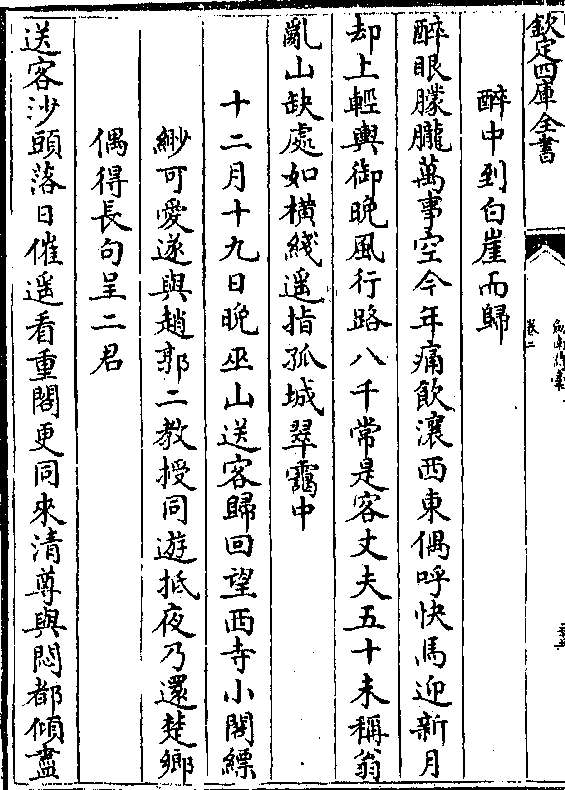 欽定四庫全書
劍南詩稾
卷二
醉中到白崖而歸
醉眼朦朧萬事空今年痛飲瀼西東偶呼快馬迎新月
却上輕輿御晚風行路八千常是客丈夫五十未稱翁
亂山缺處如橫綫遥指孤城翠靄中
十二月十九日晚巫山送客歸回望西寺小閣縹
緲可愛遂與趙郭二教授同遊抵夜乃還楚鄉
偶得長句呈二君
送客沙頭落日催遥看重閣更同來清尊與悶都傾盡